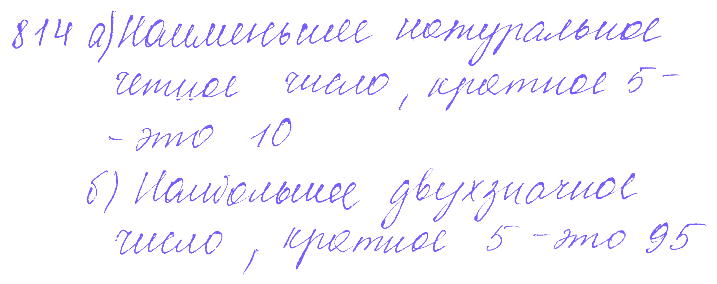 814 а) Наименьшее натуральное
четное число, кратное 5 -
- это 10
б) Наибольшее двухзначное
число, кратное 5 - это 95